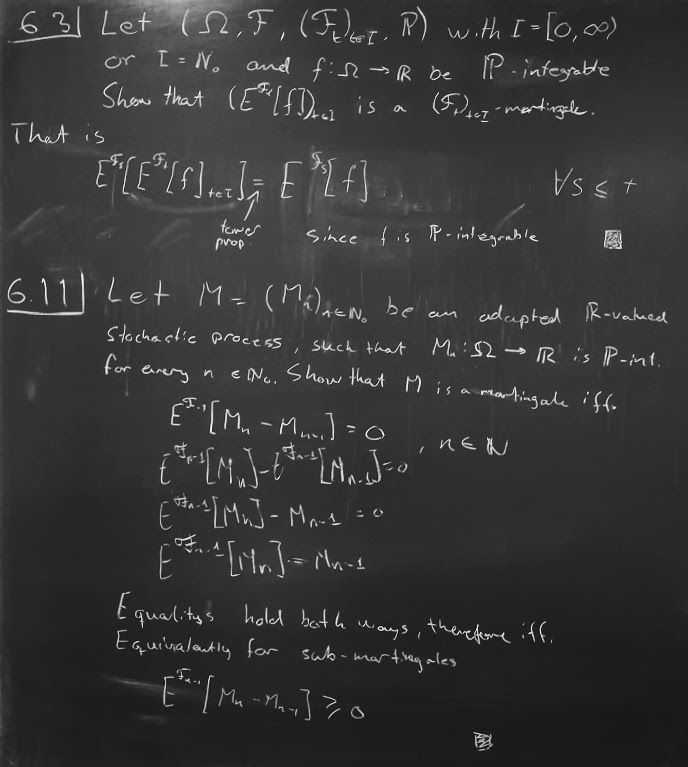 6.3 Let (Ω, F, (F_t)_{t∈I}, P) with I = [0, ∞)
or I = N₀ and f: Ω → R be P-integrable
Show that (E^{F_t}[f])_{t∈I} is a (F_t)_{t∈I}-martingale.
That is
E^{F_s}[E^{F_t}[f]_{t∈I}] = E^{F_s}[f] ∀s ≤ t
tower
prop. since f is P-integrable
6.11 Let M = (M_n)_{n∈N₀} be an adapted R-valued
stochastic process, such that M_n: Ω → R is P-int.
for every n ∈ N₀. Show that M is a martingale iff.
E^{F_{n-1}}[M_n - M_{n-1}] = 0
E^{F_{n-1}}[M_n] - E^{F_{n-1}}[M_{n-1}] = 0 , n ∈ N
E^{F_{n-1}}[M_n] - M_{n-1} = 0
E^{F_{n-1}}[M_n] = M_{n-1}
Equalitys hold both ways, therefore iff.
Equivalently for sub-martingales
E^{F_{n-1}}[M_n - M_{n-1}] ≥ 0